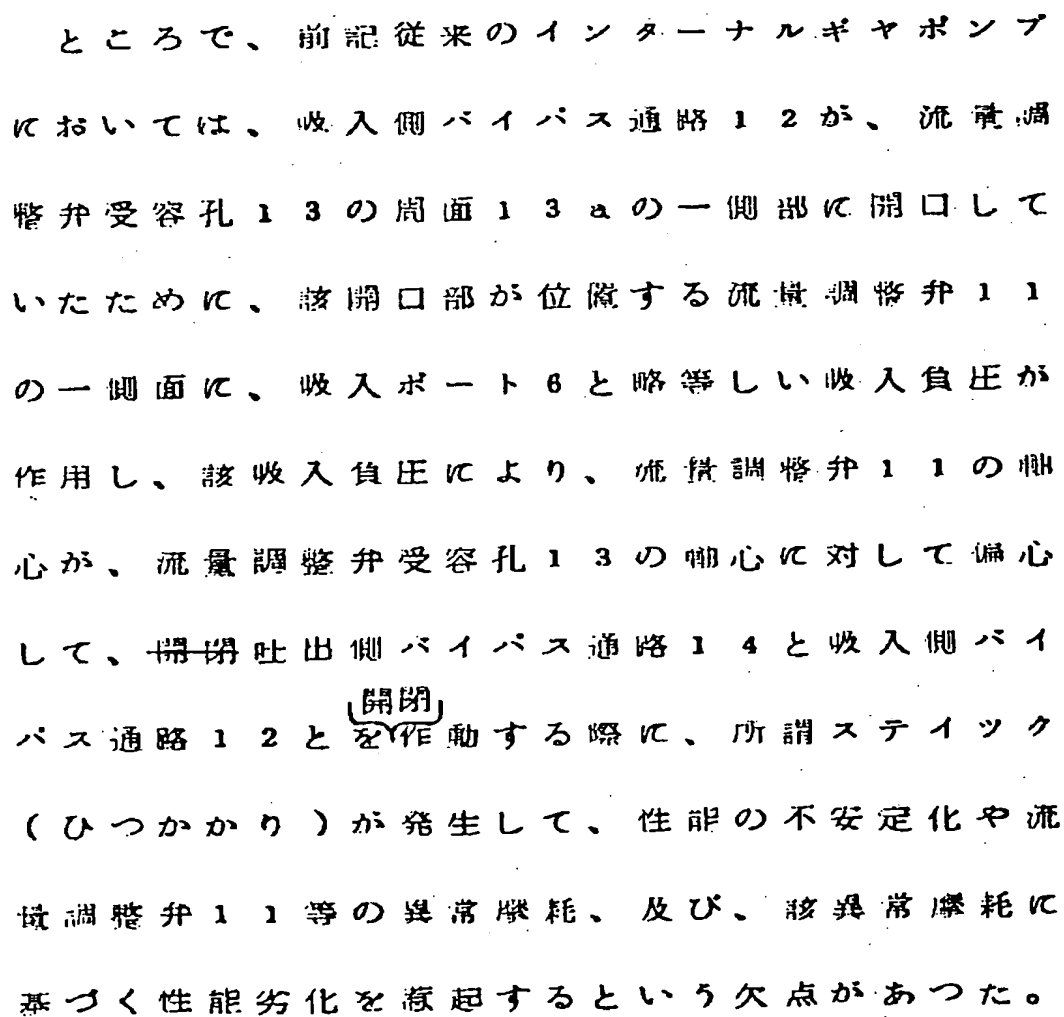 ところで、前記従来のインターナルギヤポンプ
においては、吸入側バイパス通路12が、流量調
整弁受容孔13の周面13aの一側部に開口して
いたために、該開口部が位置する流量調整弁11
の一側面に、吸入ポート6と略等しい吸入負圧が
作用し、該吸入負圧により、流量調整弁11の軸
心が、流量調整弁受容孔13の軸心に対して偏心
して、開閉吐出側バイパス通路14と吸入側バイ
開閉
パス通路12とを作動する際に、所謂ステイツク
(ひつかかり)が発生して、性能の不安定化や流
量調整弁11等の異常摩耗、及び、該異常摩耗に
基づく性能劣化を惹起するという欠点があつた。